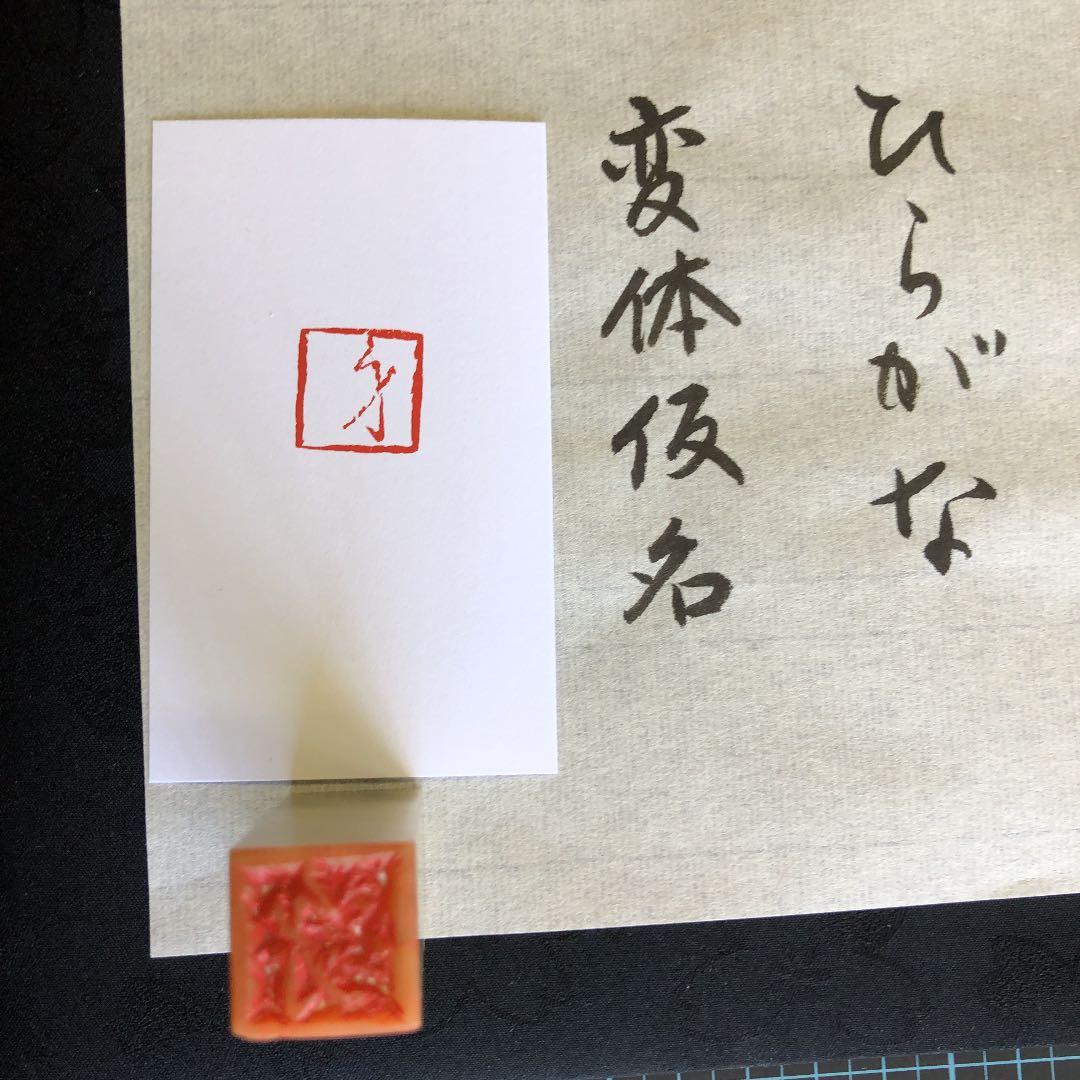 ひらがな
変体仮名